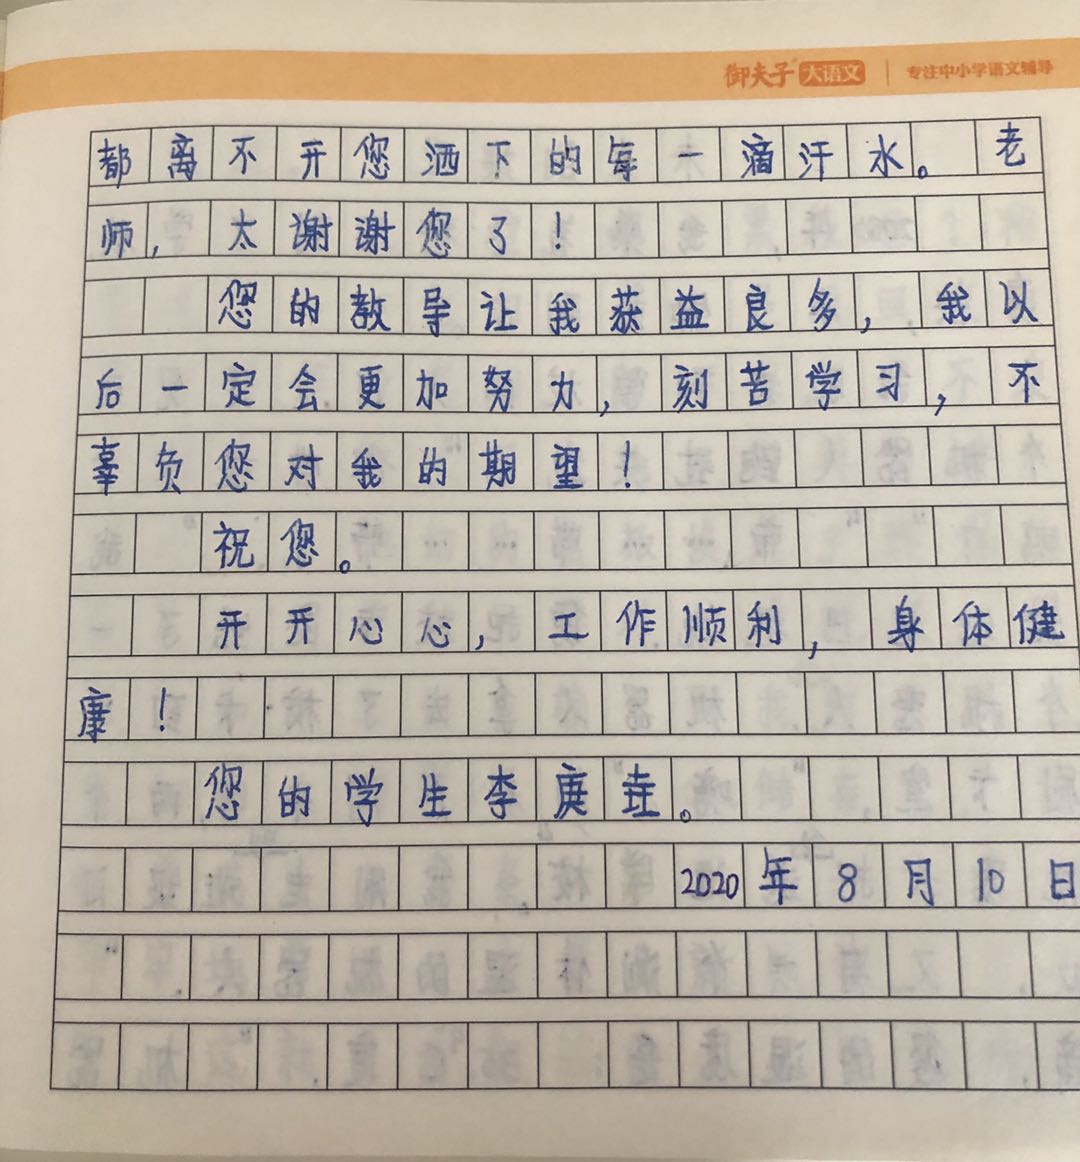 御夫子 大语文 | 专注中小学语文辅导
都离不开您洒下的每一滴汗水。老
师,太谢谢您了!
您的教导让我获益良多,我以
后一定会更加努力,刻苦学习,不
辜负您对我的期望!
祝您。
开开心心,工作顺利,身体健
康!
您的学生李庚垚。
2020年8月10日